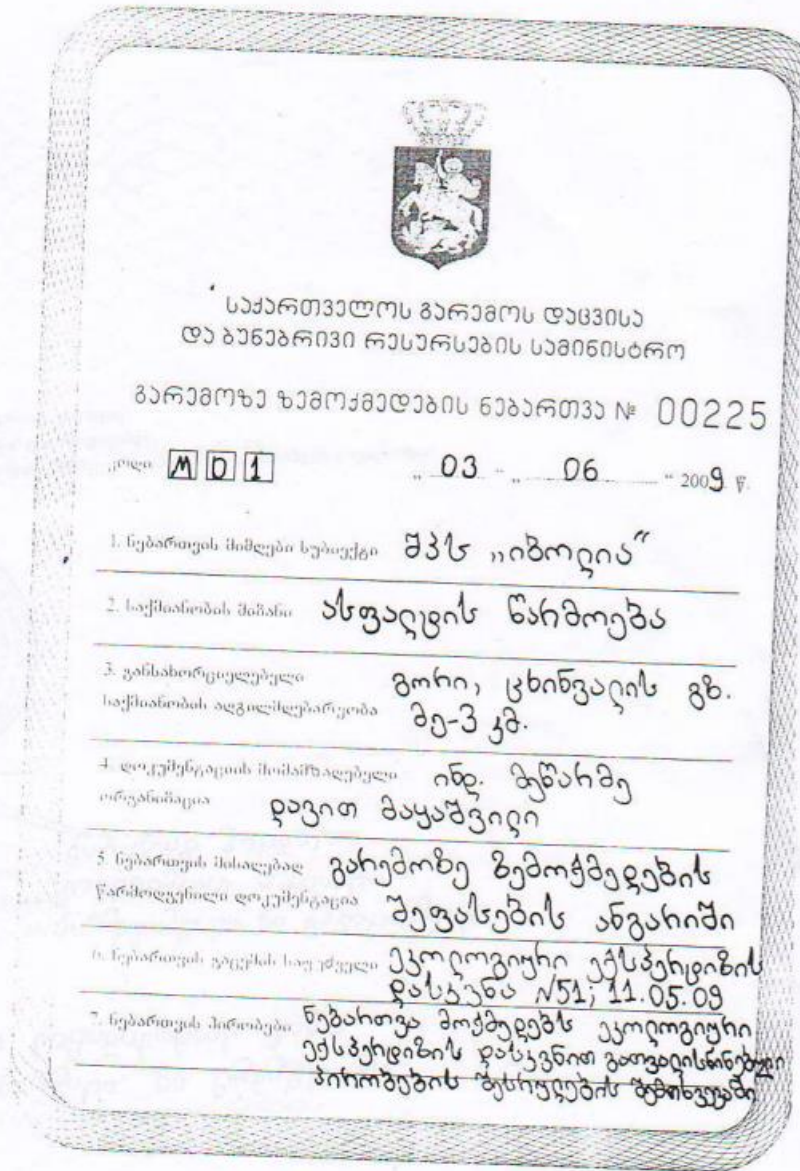 საქართველოს გარემოს დაცვისა
და ბუნებრივი რესურსების სამინისტრო
გარემოზე ზემოქმედების ნებართვა № 00225
კოდი M D 1 „ 03 “ „ 06 “ 2009 წ.
1. ნებართვის მიმღები სუბიექტი შპს „იზოლია“
2. საქმიანობის მიზანი ასფალტის წარმოება
3. განსახორციელებელი გორი, ცხინვალის გზ.
საქმიანობის ადგილმდებარეობა მე-3 კმ.
4. დოკუმენტაციის მომამზადებელი ინდ. მეწარმე
ორგანიზაცია დავით მაყაშვილი
5. ნებართვის მისაღებად გარემოზე ზემოქმედების
წარმოდგენილი დოკუმენტაცია შეფასების ანგარიში
6. ნებართვის გაცემის საფუძველი ეკოლოგიური ექსპერტიზის
დასკვნა N51; 11.05.09
7. ნებართვის პირობები ნებართვა მოქმედებს ეკოლოგიური
ექსპერტიზის დასკვნით გათვალისწინებული
პირობების შესრულების შემთხვევაში